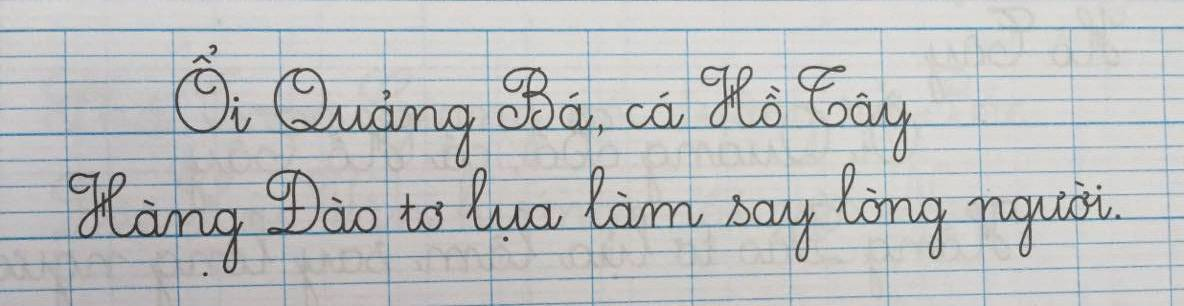 Ổi Quảng Bá, cá Hồ Tây
Hàng Đào tơ lụa làm say lòng người.